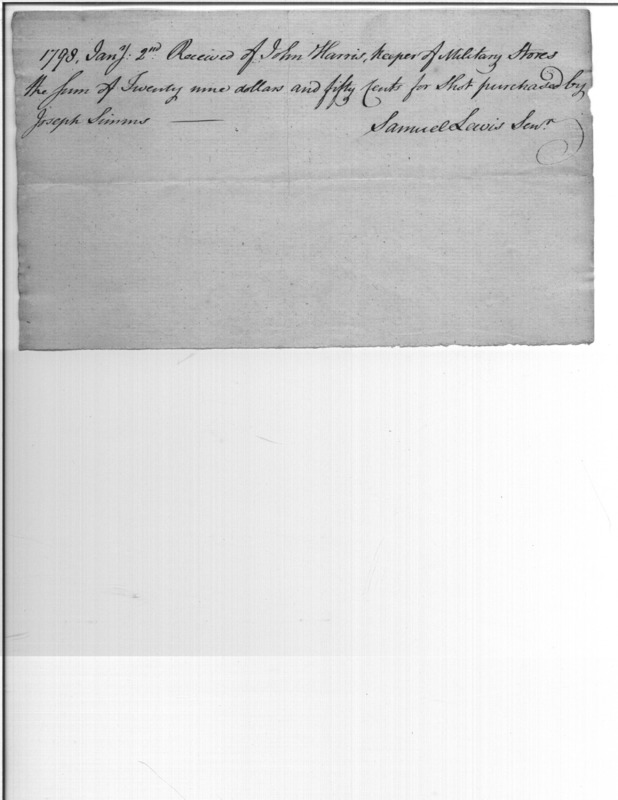 1798, Jany. 2nd Received of John Harris, keeper of Military Stores
the Sum of Twenty nine dollars and fifty Cents for Shot purchased by
Joseph Simms —
Samuel Lewis Senr.